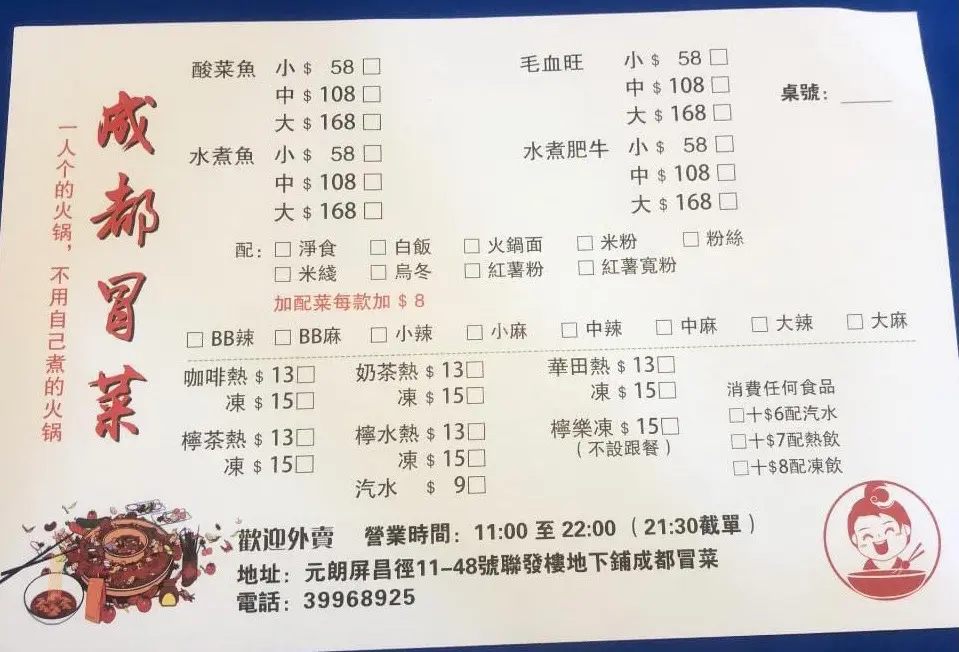 成都冒菜
一人个的火锅，不用自己煮的火锅
酸菜魚 小 $ 58 □
中 $ 108 □
大 $ 168 □
毛血旺 小 $ 58 □
中 $ 108 □
大 $ 168 □
桌號：____
水煮魚 小 $ 58 □
中 $ 108 □
大 $ 168 □
水煮肥牛 小 $ 58 □
中 $ 108 □
大 $ 168 □
配：□ 淨食 □ 白飯 □ 火鍋面 □ 米粉 □ 粉絲
□ 米綫 □ 烏冬 □ 紅薯粉 □ 紅薯寬粉
加配菜每款加 $ 8
□ BB辣 □ BB麻 □ 小辣 □ 小麻 □ 中辣 □ 中麻 □ 大辣 □ 大麻
咖啡熱 $ 13□ 奶茶熱 $ 13□ 華田熱 $ 13□
凍 $ 15□ 凍 $ 15□ 凍 $ 15□
檸茶熱 $ 13□ 檸水熱 $ 13□ 檸樂凍 $ 15□
凍 $ 15□ 凍 $ 15□ （不設跟餐）
汽水 $ 9□
消費任何食品
□十$6配汽水
□十$7配熱飲
□十$8配凍飲
歡迎外賣 營業時間：11:00 至 22:00（21:30截單）
地址：元朗屏昌徑11–48號聯發樓地下鋪成都冒菜
電話：39968925